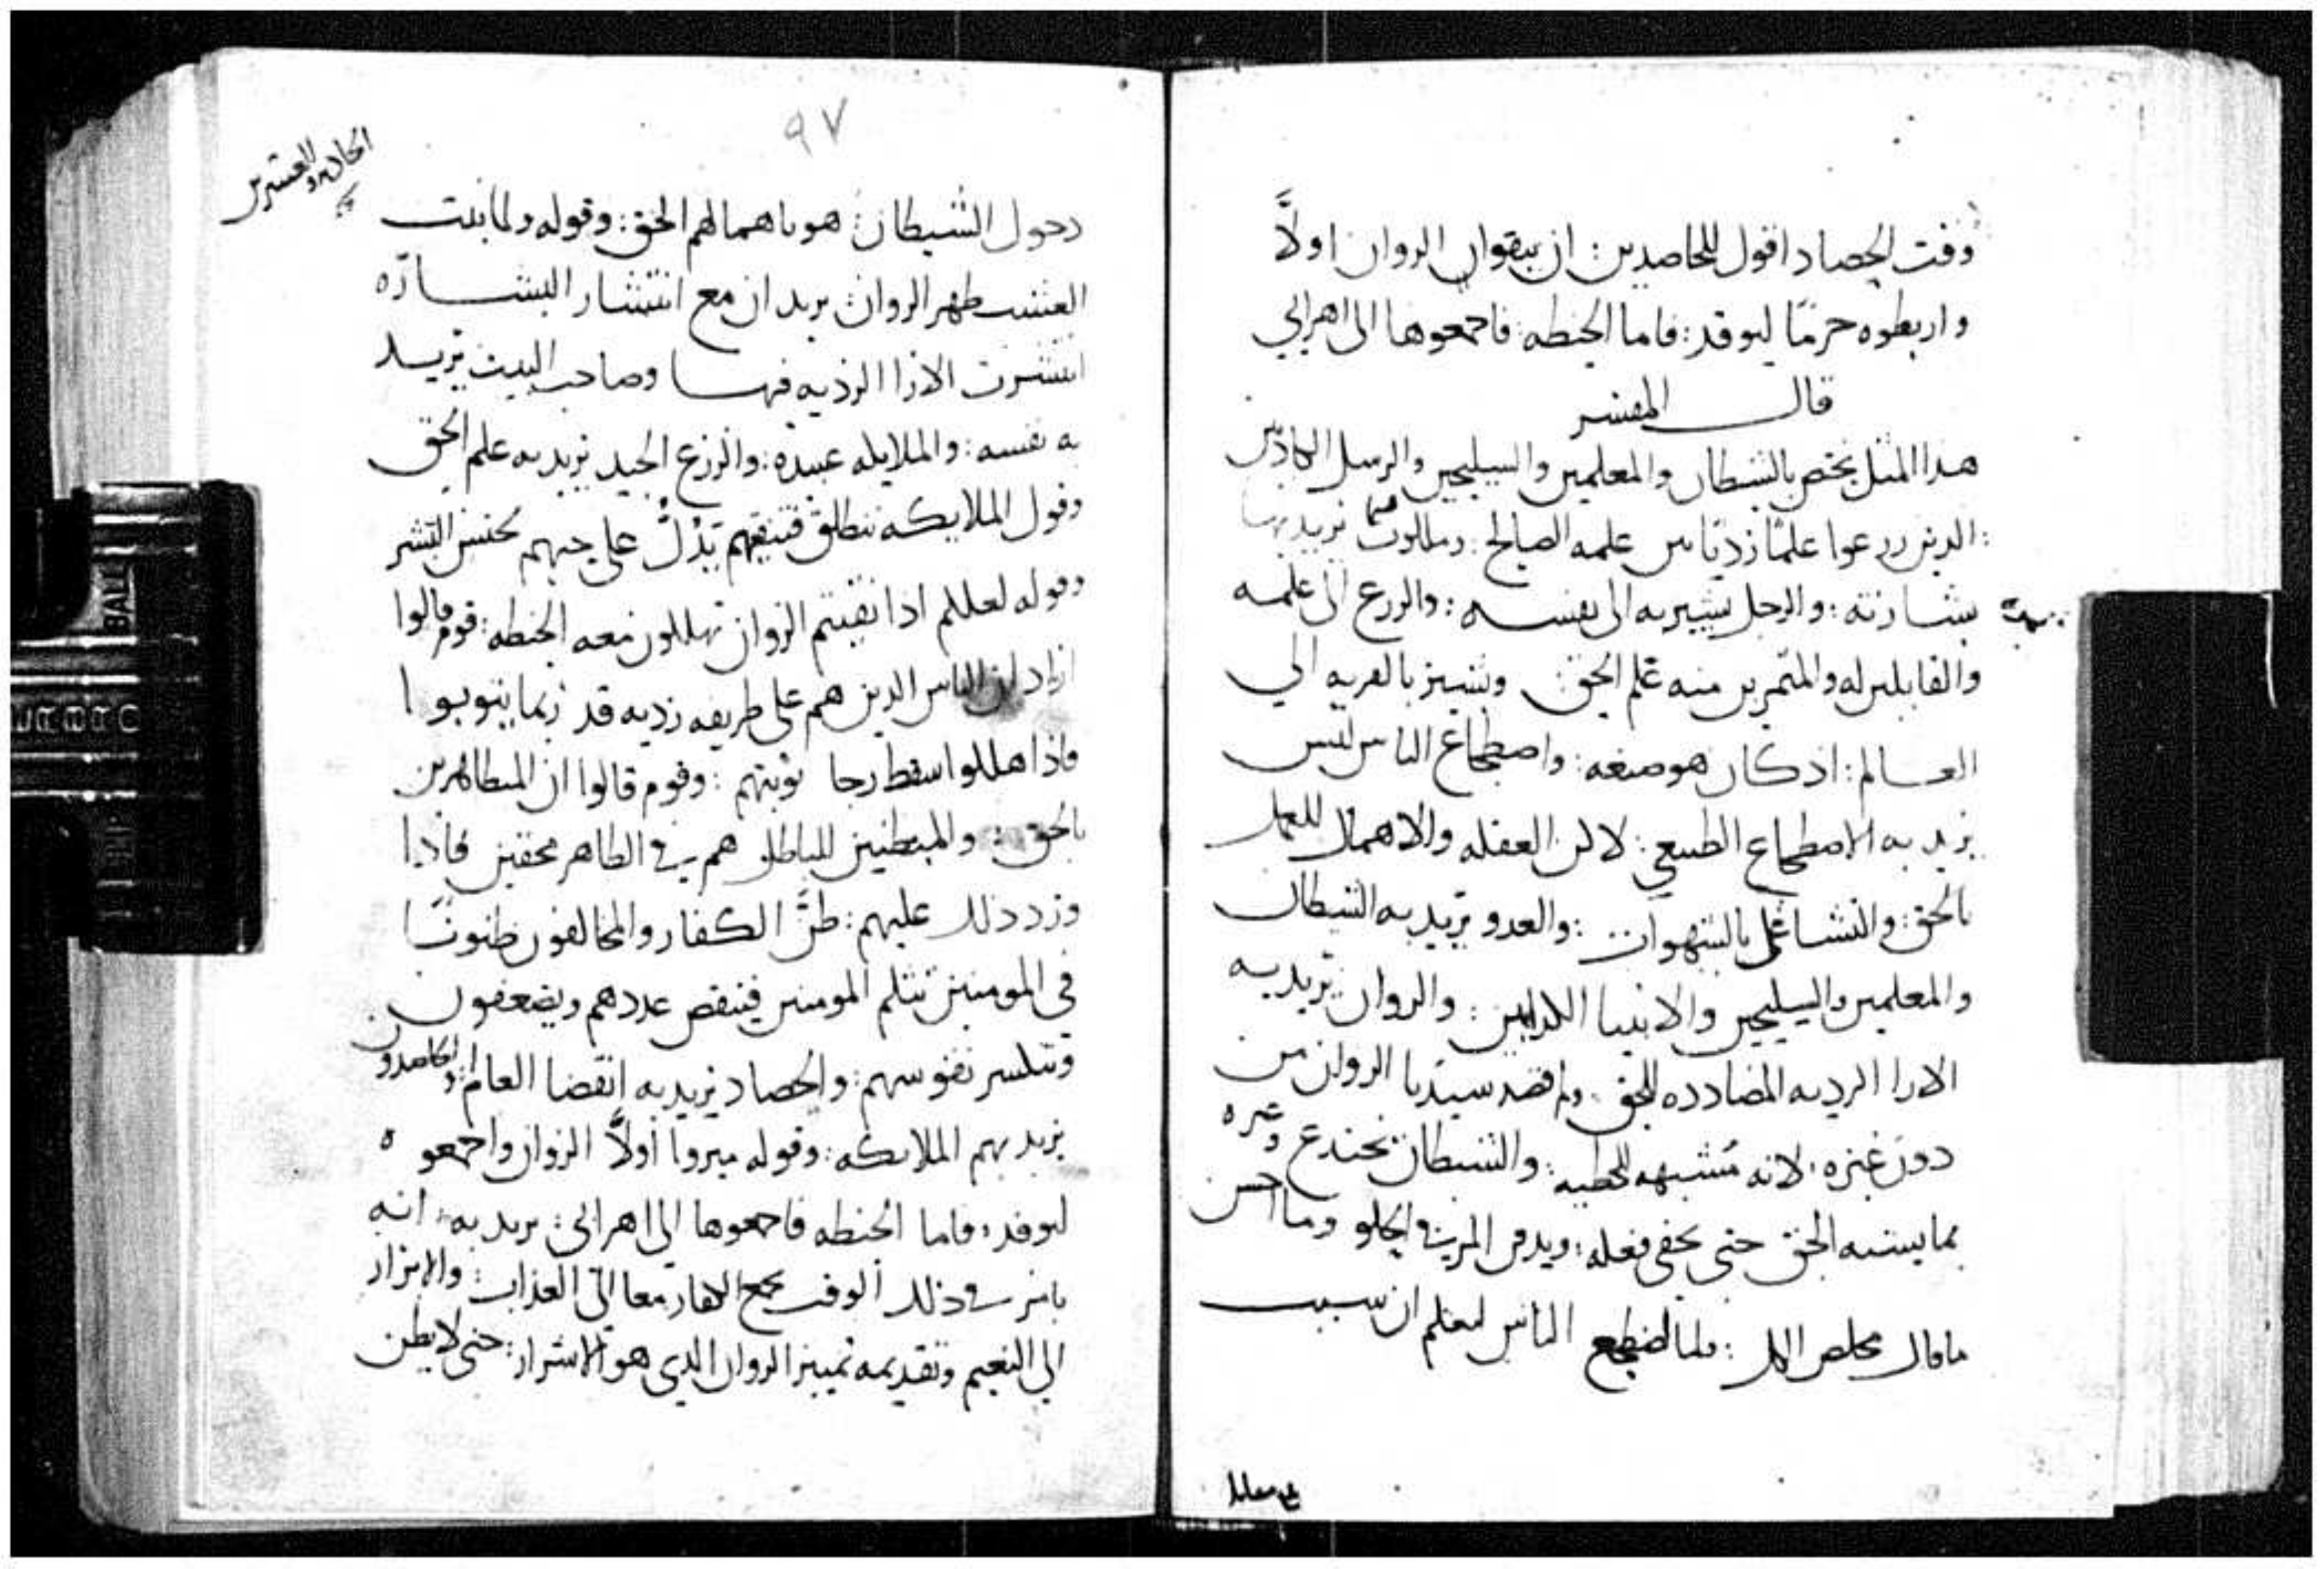 وقت الحصاد اقول للحاصدين: ان ينقوا الزوان اولاً
واربطوه حزمًا ليوقد: فاما الحنطه: فاجمعوها الى اهرايي
قال المفسر
هذا المثل يختص بالشيطان والمعلمين والسليحين والرسل الكاذبين
الذين زرعوا علمًا رديًا من علمه الصالح: وملكوت السما نريد بها
بشارته: والرجل يشير به الى نفسه: والزرع الى علمه
والقابلين له والمتمرين منه علم الحق: ويشير بالقريه الى
العالم: اذ كان هو صنعه: واضطجاع الناس ليس
يريد به الاضطجاع الطبيعي: لاكن الغفله والاهمال للعمل
بالحق: والتشاغل بالشهوات: والعدو يريد به الشيطان
والمعلمين والسليحين والانبيا الكدابين: والزوان يريد به
الارا الرديه المضادده للحق: ولم قصد سيدنا الزوان من
دون غيره: لانه مشبهه للحنطه: والشيطان يخدع وغيره
بما يشبه الحق حتى يخفى فعله: ويدفن المر في الحلو وما احسن
ما قال مخلص الكل: فلما اضطجع الناس ليعلم ان سبب
٩٧
الحادي والعشرين
دخول الشيطان: هو باهمالهم الحق: وقوله ولما نبت
العشب ظهر الزوان يريد ان مع انتشار البشاره
انتشرت الارا الرديه فيها وصاحب البيت يريد
به نفسه: والملايكه عبيده: والزرع الجيد يريد به علم الحق
وقول الملايكه ننطلق فننقيهم يدُلُّ على حبهم لجنس البشر
وقوله لعلكم اذا نقيتم الزوان تهلكون معه الحنطه: قوم قالوا
اراد ان الناس الذين هم على طريقه رديه قد ربما يتوبوا
فاذا هلكوا اسقط رجا توبتهم: وقوم قالوا ان المتظاهرين
بالحق: والمبطنين للباطل هم في الظاهر محقين فاذا
ورد ذلك عليهم: ظنَّ الكفار والمخالفون ظنونًا
في المومنين تثلم المومنين فينقص عددهم ويضعفون
وتنكسر نفوسهم: والحصاد يريد به انقضا العالم: والحاصدون
يريد بهم الملايكه: وقوله ميزوا أولاً الزوان واجمعوه
ليوقد: فاما الحنطه فاجمعوها الى اهرايي: يريد به: انه
يامر في ذلك الوقت بجمع الكفار معا الى العذاب: والابرار
الى النعيم وتقديمه تمييز الزوان الذي هو الاشرار: حتى لا يظن